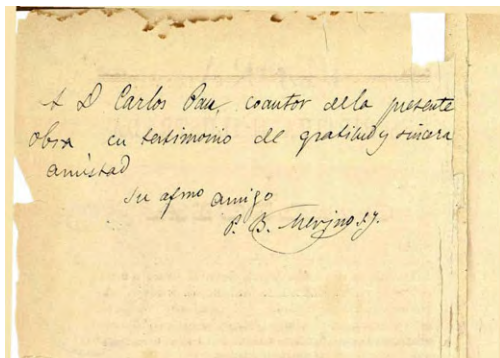 A D Carlos Pau, coautor de la presente
obra en testimonio de gratitud y sincera
amistad
Su afmo amigo
P. B. Merino. s.J.